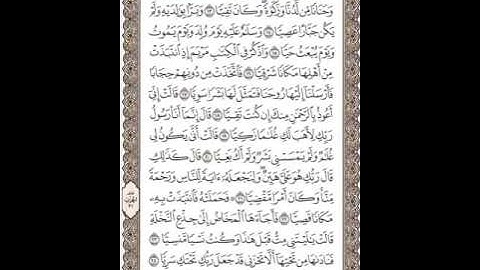 وَحَنَانًا مِّن لَّدُنَّا وَزَكَوٰةً ۖ وَكَانَ تَقِيًّا ﴿١٣﴾ وَبَرًّۢا بِوَٰلِدَيْهِ وَلَمْ
يَكُن جَبَّارًا عَصِيًّا ﴿١٤﴾ وَسَلَٰمٌ عَلَيْهِ يَوْمَ وُلِدَ وَيَوْمَ يَمُوتُ
وَيَوْمَ يُبْعَثُ حَيًّا ﴿١٥﴾ وَٱذْكُرْ فِى ٱلْكِتَٰبِ مَرْيَمَ إِذِ ٱنتَبَذَتْ
مِنْ أَهْلِهَا مَكَانًا شَرْقِيًّا ﴿١٦﴾ فَٱتَّخَذَتْ مِن دُونِهِمْ حِجَابًا
فَأَرْسَلْنَآ إِلَيْهَا رُوحَنَا فَتَمَثَّلَ لَهَا بَشَرًا سَوِيًّا ﴿١٧﴾ قَالَتْ إِنِّىٓ
أَعُوذُ بِٱلرَّحْمَٰنِ مِنكَ إِن كُنتَ تَقِيًّا ﴿١٨﴾ قَالَ إِنَّمَآ أَنَا۠ رَسُولُ
رَبِّكِ لِأَهَبَ لَكِ غُلَٰمًا زَكِيًّا ﴿١٩﴾ قَالَتْ أَنَّىٰ يَكُونُ لِى
غُلَٰمٌ وَلَمْ يَمْسَسْنِى بَشَرٌ وَلَمْ أَكُ بَغِيًّا ﴿٢٠﴾ قَالَ كَذَٰلِكِ
قَالَ رَبُّكِ هُوَ عَلَىَّ هَيِّنٌ ۖ وَلِنَجْعَلَهُۥٓ ءَايَةً لِّلنَّاسِ وَرَحْمَةً
مِّنَّا ۚ وَكَانَ أَمْرًا مَّقْضِيًّا ﴿٢١﴾ فَحَمَلَتْهُ فَٱنتَبَذَتْ بِهِۦ
مَكَانًا قَصِيًّا ﴿٢٢﴾ فَأَجَآءَهَا ٱلْمَخَاضُ إِلَىٰ جِذْعِ ٱلنَّخْلَةِ
قَالَتْ يَٰلَيْتَنِى مِتُّ قَبْلَ هَٰذَا وَكُنتُ نَسْيًا مَّنسِيًّا ﴿٢٣﴾
فَنَادَىٰهَا مِن تَحْتِهَآ أَلَّا تَحْزَنِى قَدْ جَعَلَ رَبُّكِ تَحْتَكِ سَرِيًّا ﴿٢٤﴾